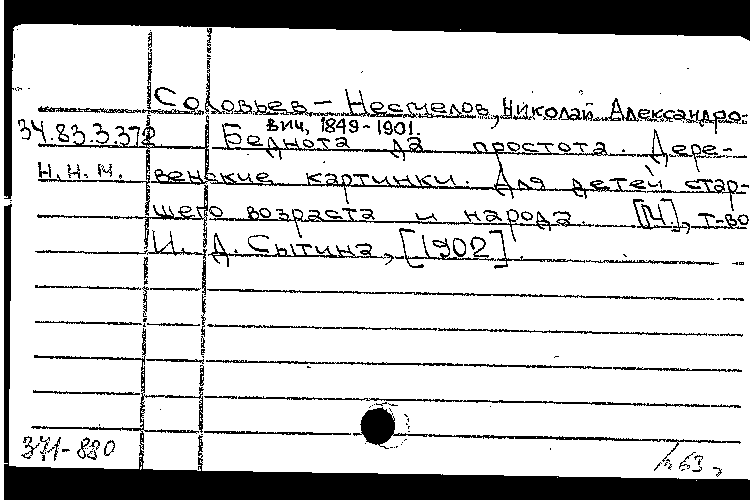 Соловьев - Несмелов, Николай Александро-
вич, 1849-1901.
34.83.3.372 Беднота да простота. Дере-
Н.Н.М. венские картинки. Для детей стар-
шего возраста и народа. [М], т-во
И. Д. Сытина, [1902].
371-880